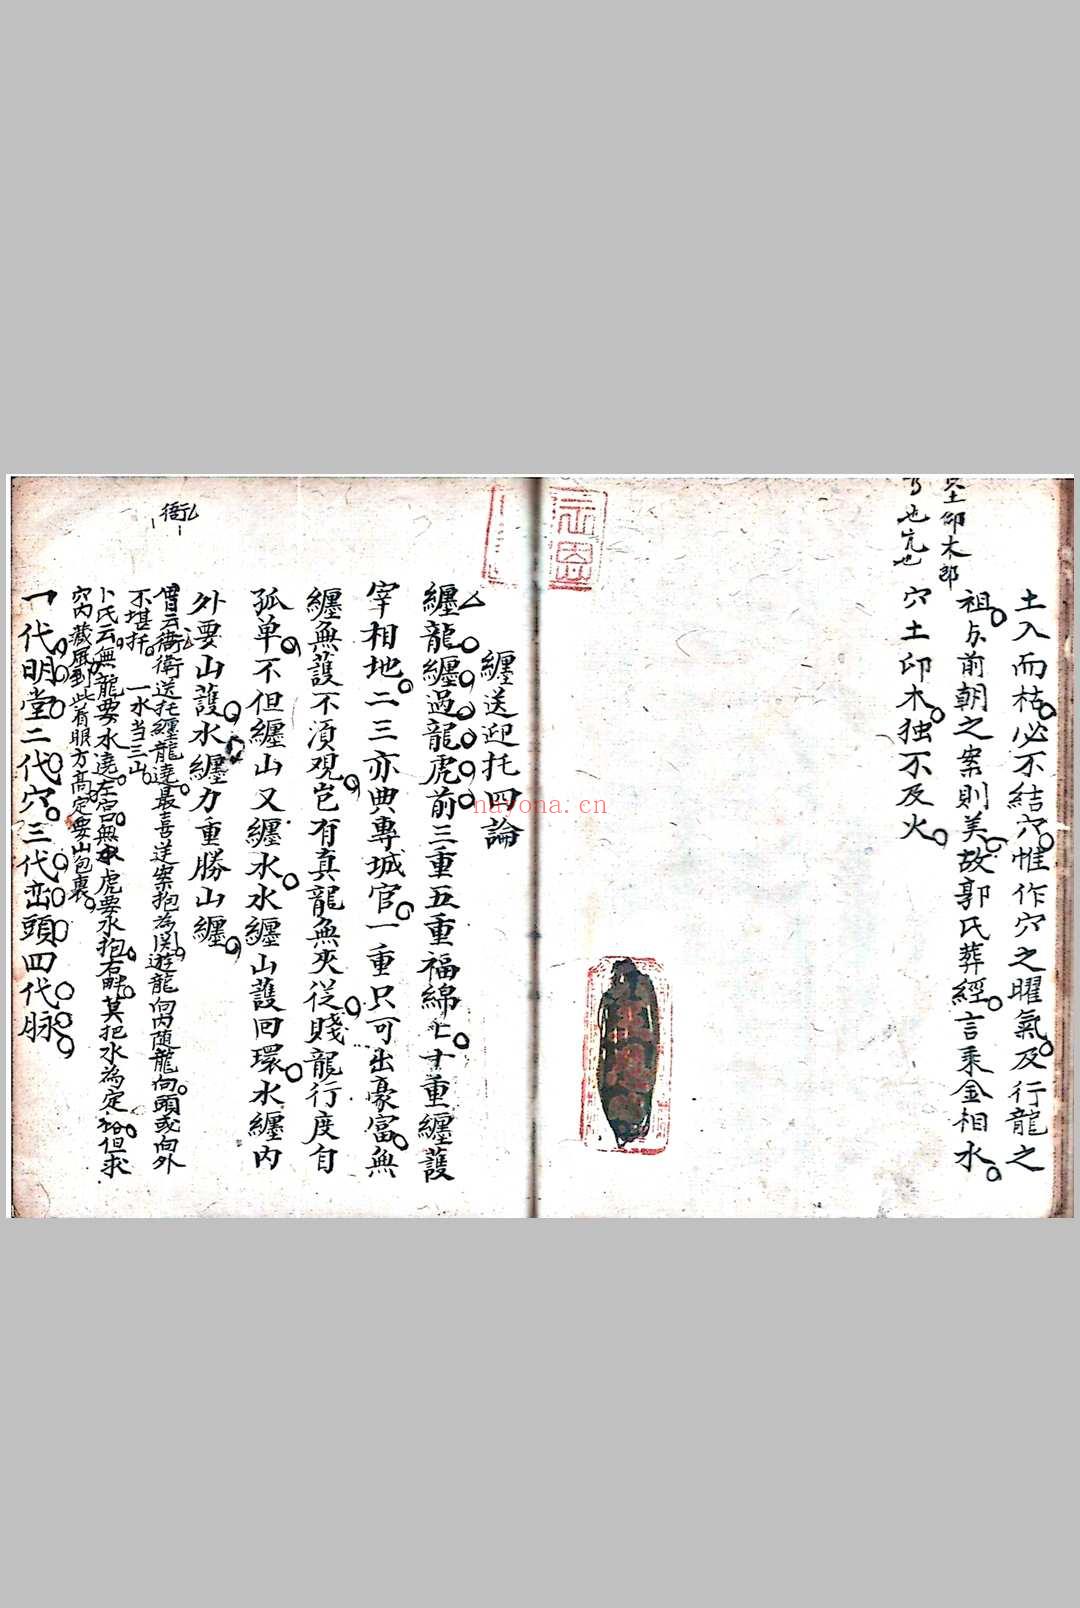 穴土卯木部
也亢也
土入而枯必不結穴惟作穴之曜氣及行龍之
祖与前朝之案則美故郭氏葬經言乘金相水
穴土印木独不及火
纏送迎托四論
纏龍纏過龍虎前三重五重福綿七十重纏護
宰相地二三亦典專城官一重只可出豪富無
纏無護不須观岂有真龍無夾從賤龍行度自
孤单不但纏山又纏水水纏山護回環水纏内
外要山護水纏力重勝山纏
衙
曾云衛送托纏龍遶最喜逆案抱為関遊龍向内随龍向頭或向外
不堪托 一水当三山
卜氏云無龍要水遶左宫無虎要水抱右畔莫把水為定格但求
穴内藏風到此着眼方高定要山包裹
一代明堂二代穴三代峦頭四代脉
nayona.cn